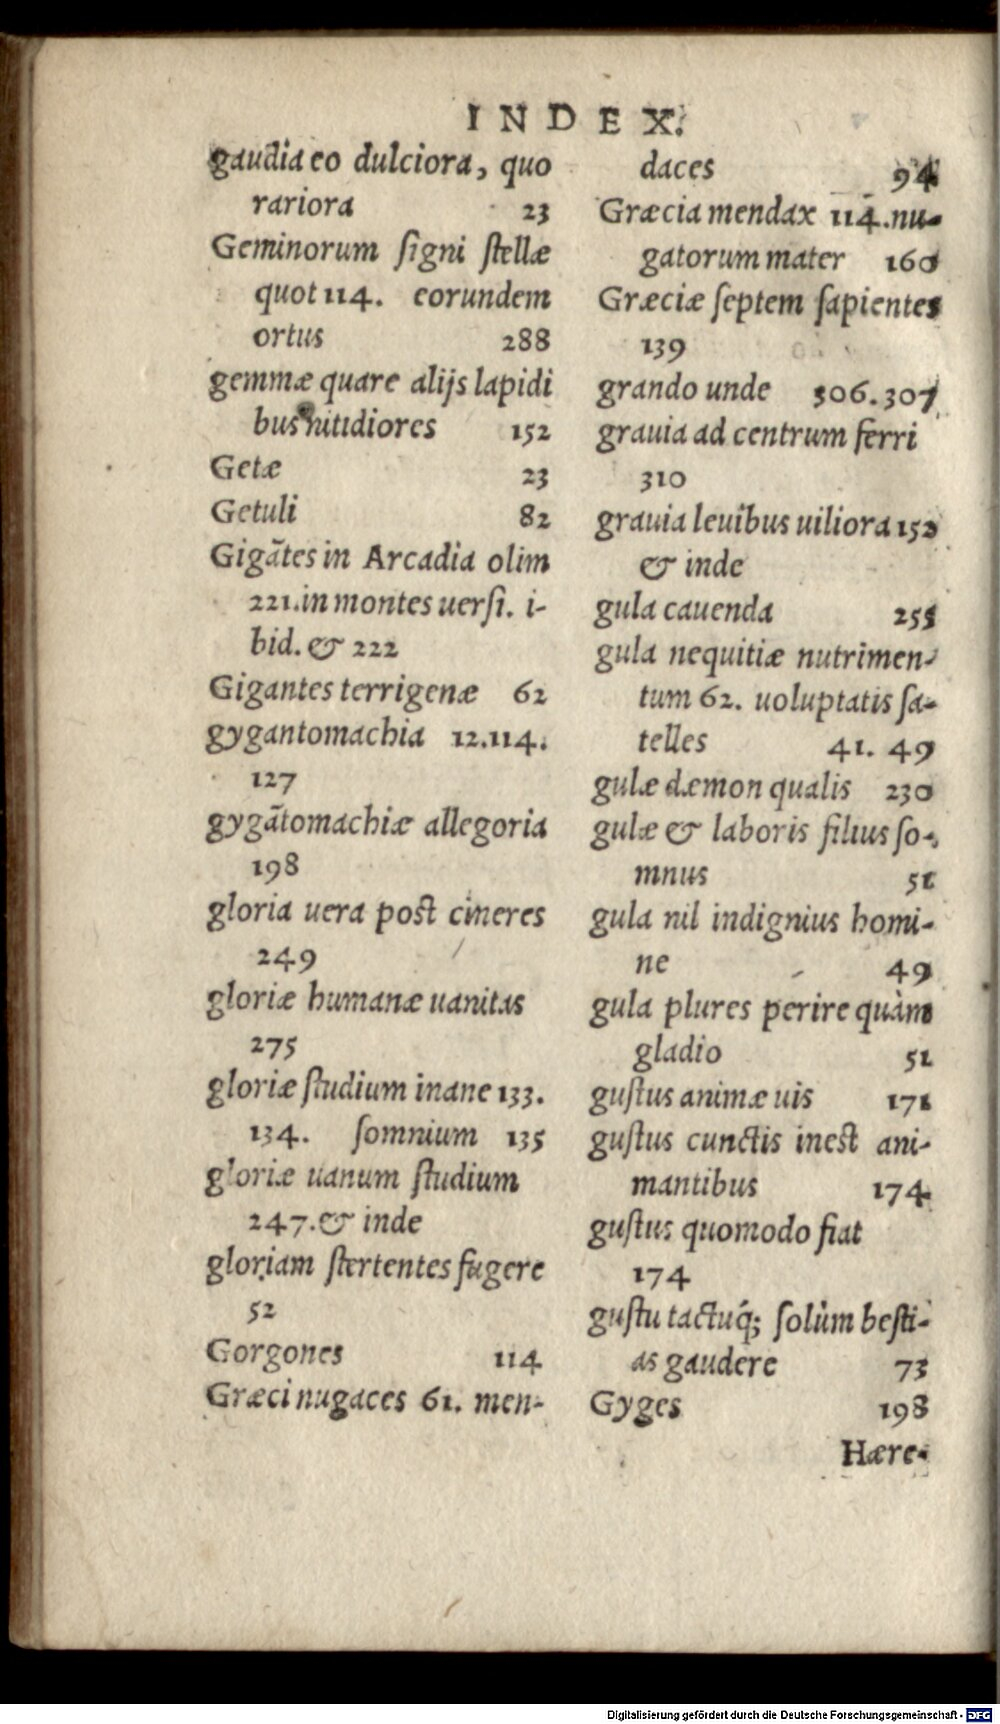 INDEX.
gaudia eo dulciora, quo
rariora 23
Geminorum ſigni ſtellæ
quot 114. eorundem
ortus 288
gemmæ quare alijs lapidi
bus nitidiores 152
Getæ 23
Getuli 82
Gigãtes in Arcadia olim
221. in montes uerſi. i-
bid. & 222
Gigantes terrigenæ 62
gygantomachia 12.114.
127
gygãtomachiæ allegoria
198
gloria uera post cineres
249
gloriæ humanæ uanitas
275
gloriæ ſtudium inane 133.
134. ſomnium 135
gloriæ uanum ſtudium
247. & inde
gloriam ſtertentes fugere
52
Gorgones 114
Græci nugaces 61. men-
daces 94
Græcia mendax 114. nu-
gatorum mater 160
Græciæ ſeptem ſapientes
139
grando unde 306.307
grauia ad centrum ferri
310
grauia leuibus uiliora 152
& inde
gula cauenda 255
gula nequitiæ nutrimen-
tum 62. uoluptatis ſa-
telles 41. 49
gulæ dæmon qualis 230
gulæ & laboris filius ſo-
mnus 51
gula nil indignius homi-
ne 49
gula plures perire quàm
gladio 51
guſtus animæ uis 171
guſtus cunctis inest ani-
mantibus 174
guſtus quomodo fiat
174
guſtu tactuq́; ſolùm beſti-
as gaudere 73
Gyges 198
Hære-
Digitalisierung gefördert durch die Deutsche Forschungsgemeinschaft - DFG